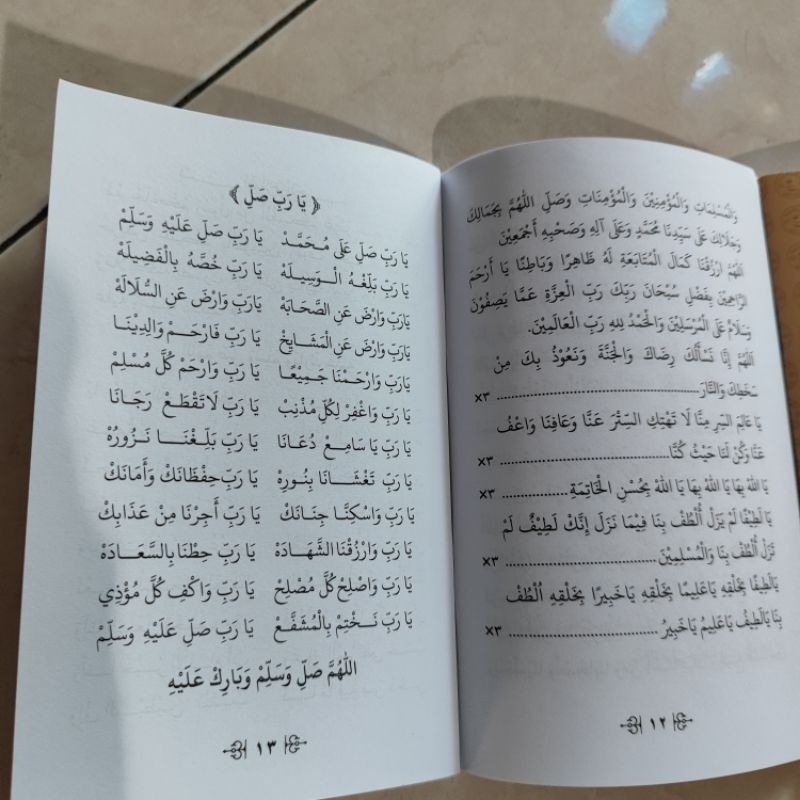 وَالْمُسْلِمَاتِ وَالْمُؤْمِنِيْنَ وَالْمُؤْمِنَاتِ وَصَلِّ اللّٰهُمَّ بِجَمَالِكَ
وَجَلَالِكَ عَلَى سَيِّدِنَا مُحَمَّدٍ وَعَلَى آلِهِ وَصَحْبِهِ أَجْمَعِيْنَ
اَللّٰهُمَّ ارْزُقْنَا كَمَالَ الْمُتَابَعَةِ لَهُ ظَاهِرًا وَبَاطِنًا يَا أَرْحَمَ
الرَّاحِمِيْنَ بِفَضْلِ سُبْحَانَ رَبِّكَ رَبِّ الْعِزَّةِ عَمَّا يَصِفُوْنَ
وَسَلَامٌ عَلَى الْمُرْسَلِيْنَ وَالْحَمْدُ لِلهِ رَبِّ الْعَالَمِيْنَ.
اَللّٰهُمَّ إِنَّا نَسْأَلُكَ رِضَاكَ وَالْجَنَّةَ وَنَعُوْذُ بِكَ مِنْ
سَخَطِكَ وَالنَّارَ ........................ ×٣
يَا عَالِمَ السِّرِ مِنَّا لَا تَهْتِكِ السِّتْرَ عَنَّا وَعَافِنَا وَاعْفُ
عَنَّا وَكُنْ لَنَا حَيْثُ كُنَّا ........................ ×٣
يَا اَللهُ بِهَا يَا اَللهُ بِهَا يَا اَللهُ بِحُسْنِ الْخَاتِمَةِ ............ ×٣
يَا لَطِيْفًا لَمْ يَزَلْ أُلْطُفْ بِنَا فِيْمَا نَزَلَ إِنَّكَ لَطِيْفٌ لَمْ
تَزَلْ أُلْطُفْ بِنَا وَالْمُسْلِمِيْنَ ........................ ×٣
يَالَطِيْفًا بِخَلْقِهِ يَاعَلِيْمًا بِخَلْقِهِ يَاخَبِيْرًا بِخَلْقِهِ اُلْطُفْ
بِنَا يَالَطِيْفُ يَاعَلِيْمُ يَاخَبِيْرُ ........................ ×٣
١٢
﴿ يَا رَبِّ صَلِّ ﴾
يَا رَبِّ صَلِّ عَلَى مُحَمَّدْ يَا رَبِّ صَلِّ عَلَيْهِ وَسَلِّمْ
يَا رَبِّ بَلِّغْهُ الْوَسِيلَهْ يَا رَبِّ خُصَّهُ بِالْفَضِيلَهْ
يَارَبِّ وَارْضَ عَنِ الصَّحَابَهْ يَارَبِّ وَارْضَ عَنِ السُّلَالَهْ
يَارَبِّ وَارْضَ عَنِ الْمَشَايِخْ يَا رَبِّ فَارْحَمْ وَالِدِيْنَا
يَارَبِّ وَارْحَمْنَا جَمِيْعًا يَا رَبِّ وَارْحَمْ كُلَّ مُسْلِمْ
يَا رَبِّ وَاغْفِرْ لِكُلِّ مُذْنِبْ يَا رَبِّ لَاتَقْطَعْ رَجَانَا
يَا رَبِّ يَا سَامِعْ دُعَانَا يَا رَبِّ بَلِّغْنَا نَزُورُهْ
يَا رَبِّ تَغْشَانَا بِنُورِهْ يَا رَبِّ حِفْظَانَكْ وَأَمَانَكْ
يَا رَبِّ وَاسْكِنَّا جِنَانَكْ يَا رَبِّ أَجِرْنَا مِنْ عَذَابِكْ
يَا رَبِّ وَارْزُقْنَا الشَّهَادَهْ يَا رَبِّ حِطْنَا بِالسَّعَادَهْ
يَا رَبِّ وَاصْلِحْ كُلَّ مُصْلِحْ يَا رَبِّ وَاكْفِ كُلَّ مُؤْذِي
يَا رَبِّ نَخْتِمْ بِالْمُشَفَّعْ يَا رَبِّ صَلِّ عَلَيْهِ وَسَلِّمْ
اَللّٰهُمَّ صَلِّ وَسَلِّمْ وَبَارِكْ عَلَيْهِ
١٣